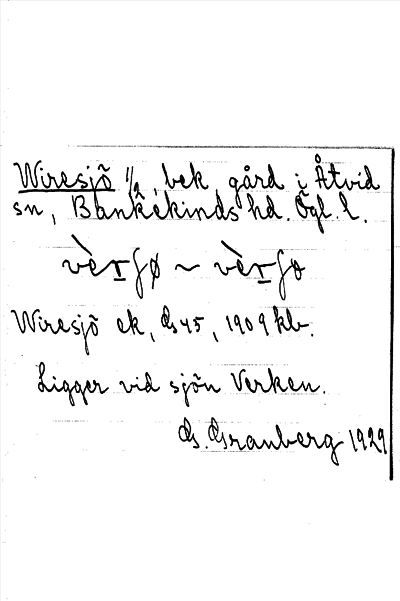 Wiresjö 1/2, bek, gård i Åtvid
sn, Bankekinds hd. Ögl. l.
vèrʃø ~ vèrʃo
Wiresjö ek, Gs 45, 1909 kb.
Ligger vid sjön Verken.
G. Granberg 1929